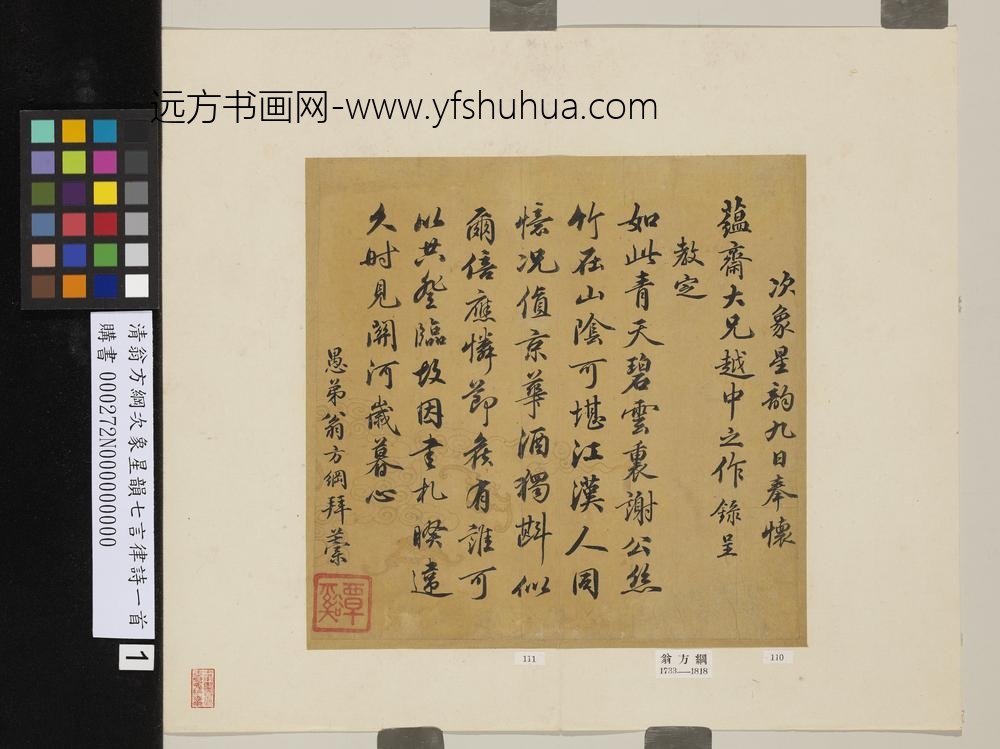 远方书画网-www.yfshuhua.com
次象星韵九日奉懷
蘊齋大兄越中之作錄呈
教定
如此青天碧雲裏謝公絲
竹在山陰可堪江漢人同
憶況值京華酒獨斟似
爾倍應憐節矦有誰可
以共登臨故因書札暌違
久时見關河歲暮心
愚弟翁方綱拜藁
覃谿
清翁方綱次象星韻七言律詩一首
購書 000272N000000000
1
111
翁方綱
1733——1818
110